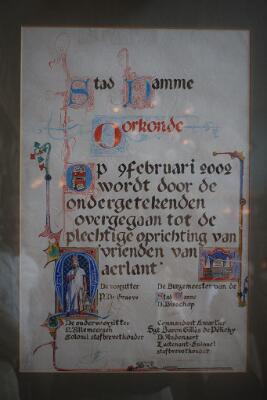 Stad Damme
Oorkonde
Op 9 februari 2002
wordt door de
ondergetekenden
overgegaan tot de
plechtige oprichting van
'vrienden van
aerlant'
De voorzitter
De Burgemeester van de
Stad Damme
D. Bisschop
De ondervoorzitter
Colonel stafbrevethouder
Commandant Kwartier
Sgt Baron Gilles de Pélichy
Luitenant-kolonel
stafbrevethouder